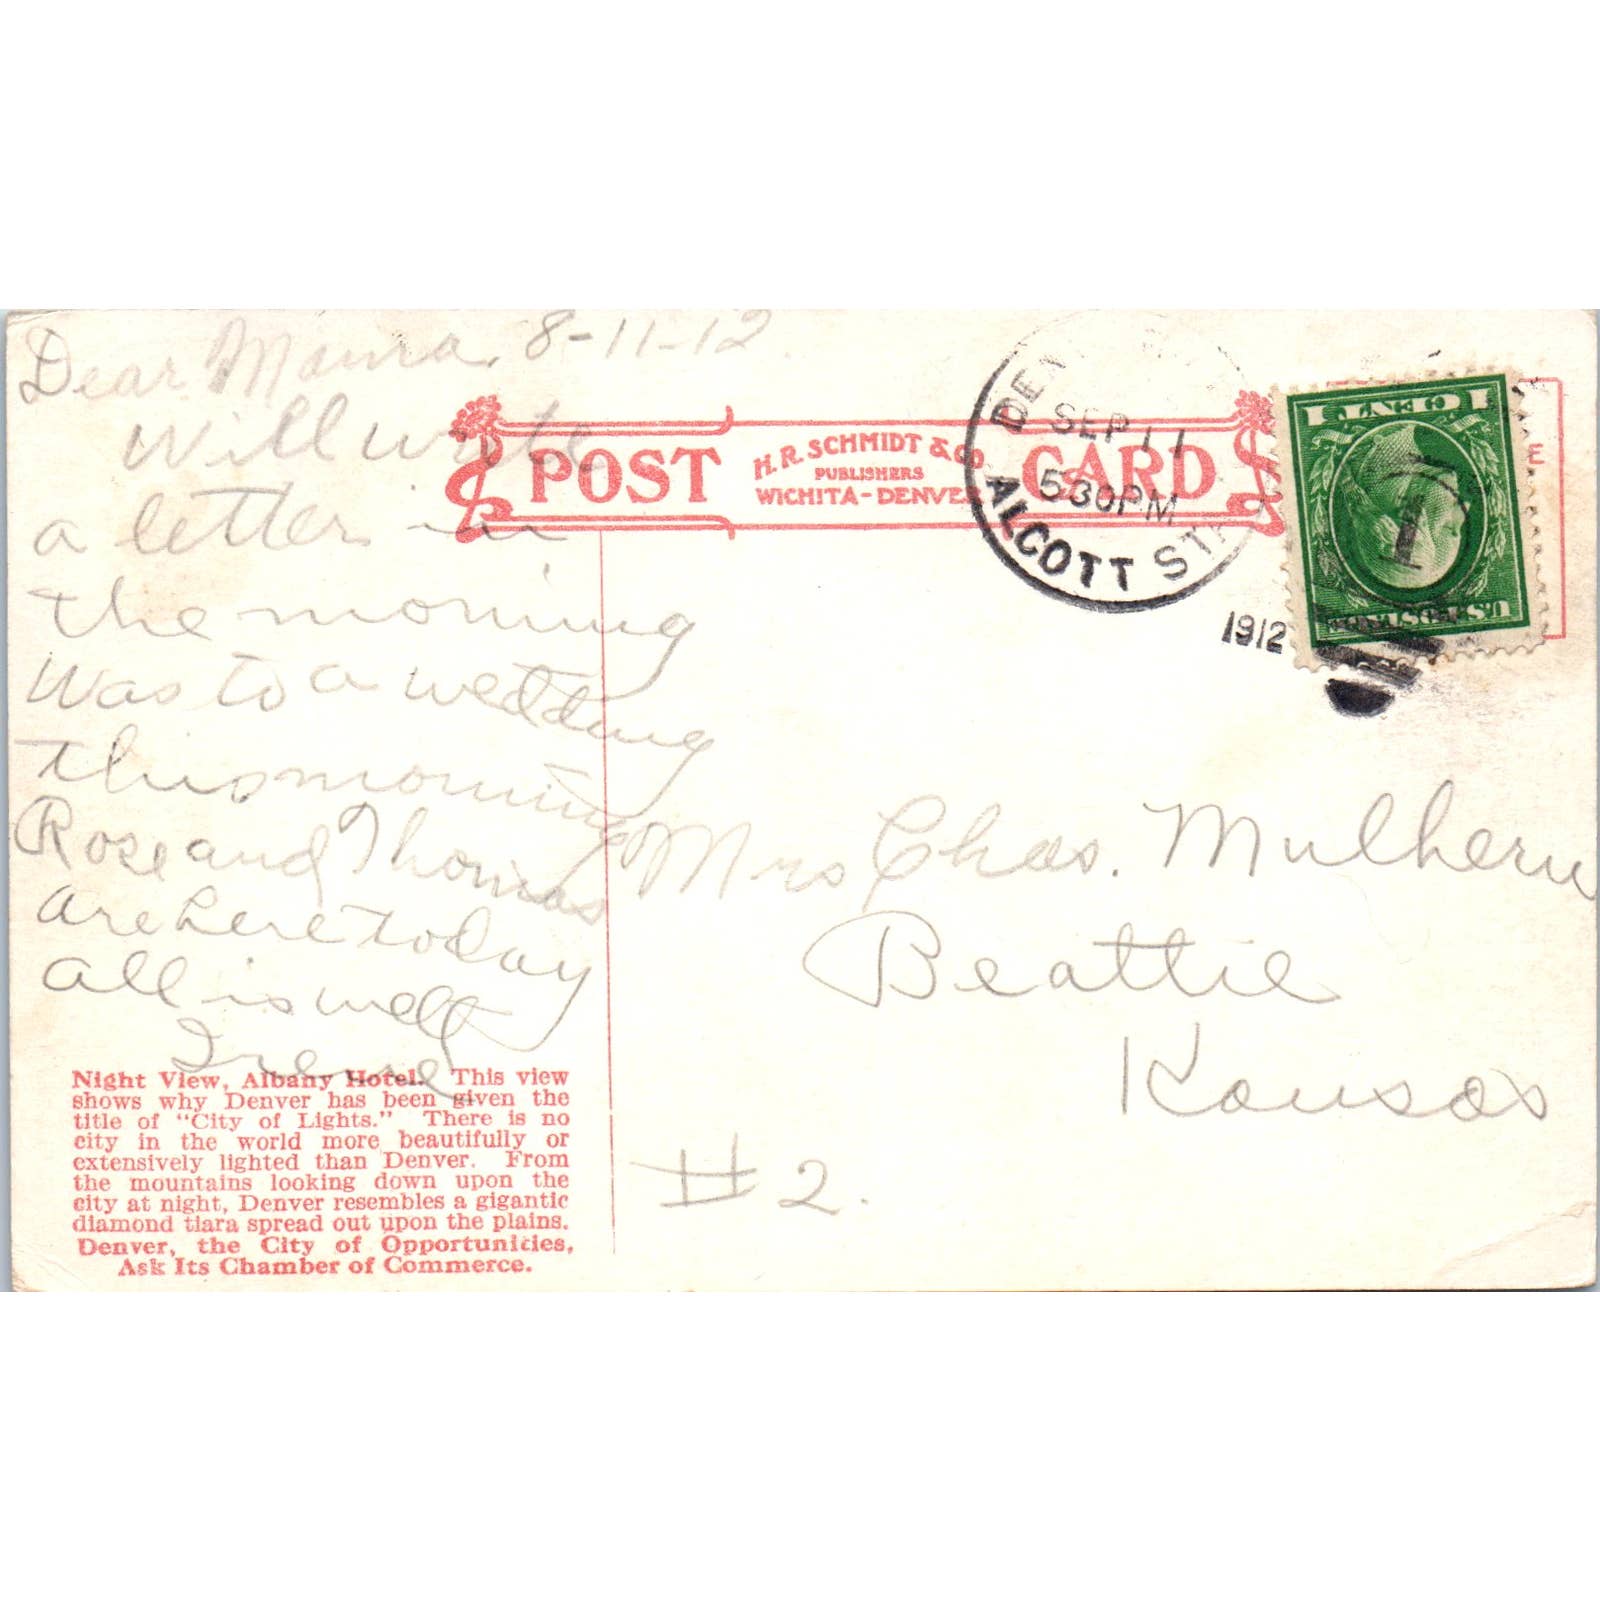 Dear Mama, 8-11-12
Will write
a letter in
the morning
Was to a wedding
this morning
Rose and Thomas
are here today
all is well
Irene
POST CARD
H. R. SCHMIDT & CO
PUBLISHERS
WICHITA-DENVER
SEP 11
530PM
ALCOTT STA
1912
1 CENT 1
U.S. POSTAGE
E
Mrs Chas. Mulhern
Beattie
Kansas
#2.
Night View, Albany Hotel. This view
shows why Denver has been given the
title of "City of Lights." There is no
city in the world more beautifully or
extensively lighted than Denver. From
the mountains looking down upon the
city at night, Denver resembles a gigantic
diamond tiara spread out upon the plains.
Denver, the City of Opportunities,
Ask Its Chamber of Commerce.